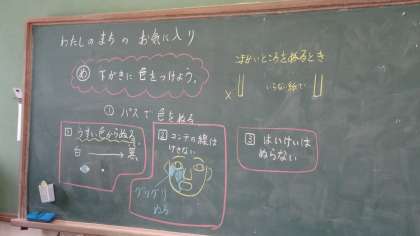 わたしのまちの お気に入り
め 下がきに色をつけよう。
こまかいところをぬるとき
×
いらない紙で
① パスで色をぬる
1 うすい色からぬる。
白 → 黒
2 コンテの線は
けさない
グリグリ
ぬる
3 はいけいは
ぬらない